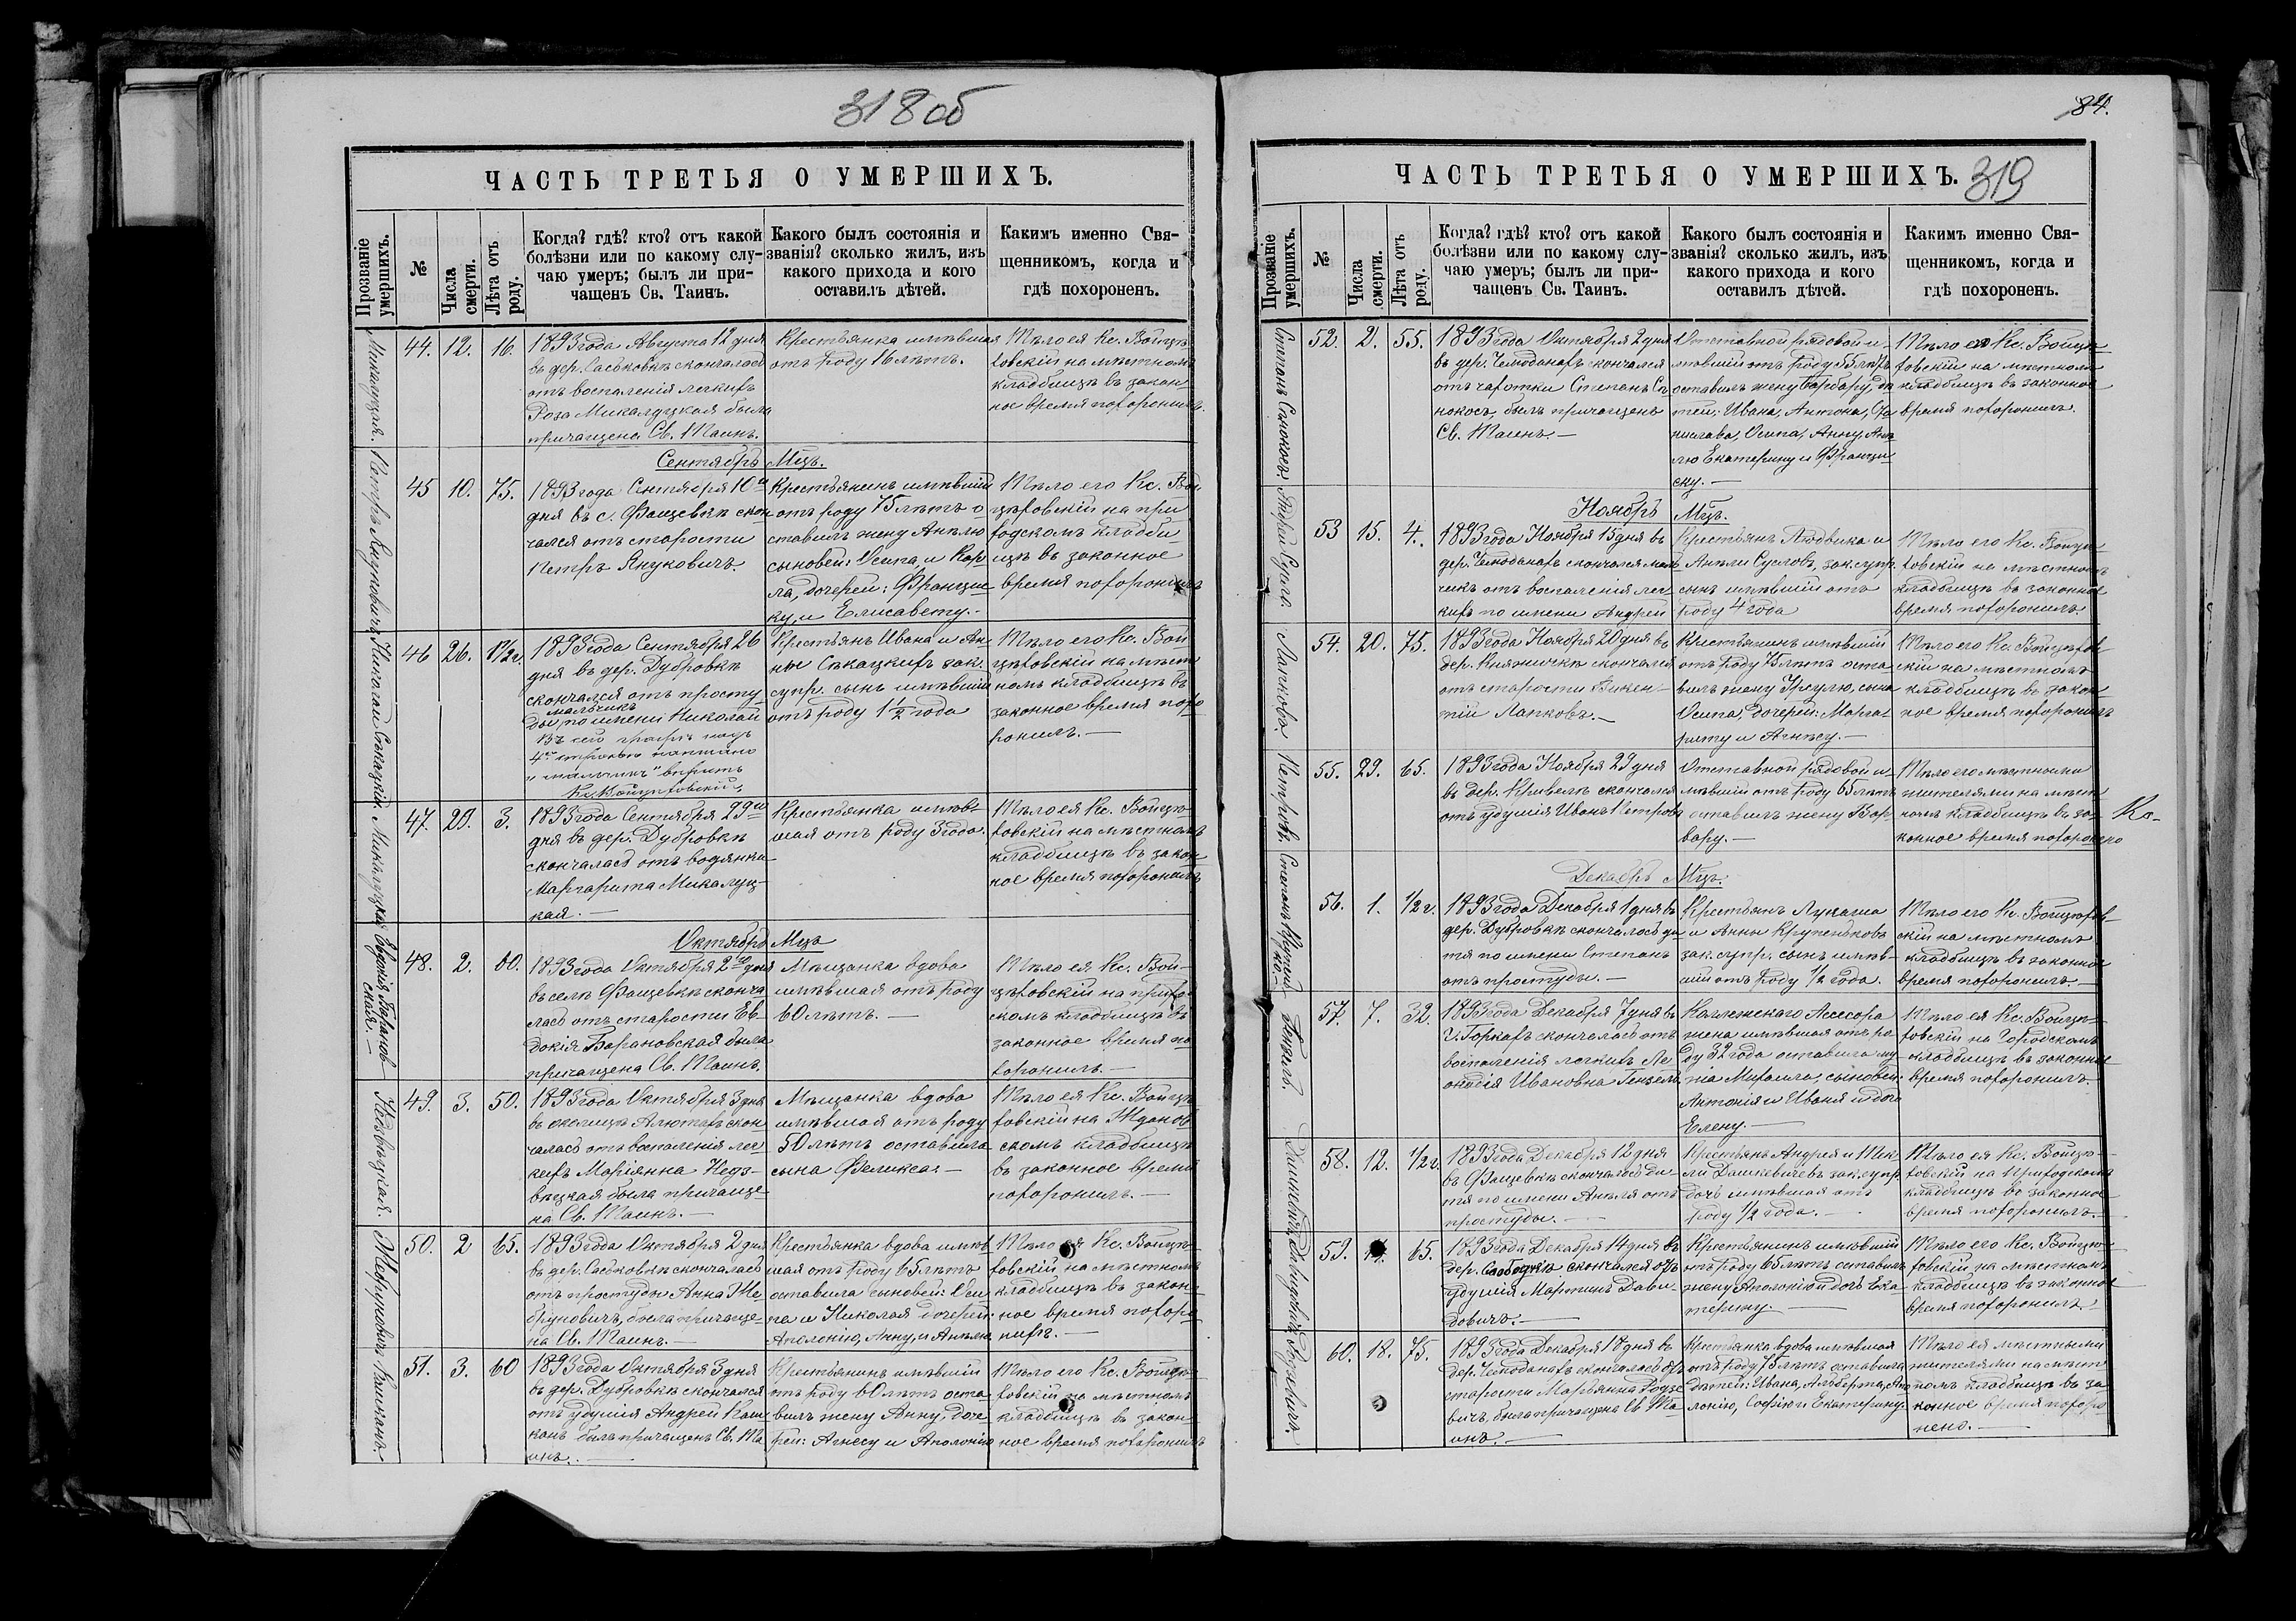 318 об
ЧАСТЬ ТРЕТЬЯ О УМЕРШИХЪ.
Прозваніе умершихъ.
№
Числа смерти.
Лѣта отъ роду.
Когда? гдѣ? кто? отъ какой
болѣзни или по какому слу-
чаю умеръ; былъ ли при-
чащенъ Св. Таинъ.
Какого былъ состоянія и
званія? сколько жилъ, изъ
какого прихода и кого
оставилъ дѣтей.
Какимъ именно Свя-
щенникомъ, когда и
гдѣ похороненъ.
44. 12. 16.
1893 года Августа 12 дня
въ дер. Саськовкѣ скончалась
отъ воспаленія легкихъ
Роза Микалуцкая была
причащена Св. Таинъ.
Крестьянка имѣвшая
отъ роду 16 лѣтъ.
Тѣло ея Кс. Войцѣ-
ховскій на мѣстномъ
кладбищѣ въ закон-
ное время похоронилъ.
Сентябрь Мцъ.
Петръ Януковичъ
45 10. 75.
1893 года Сентября 10го
дня въ с. Фащевкѣ скон
чался отъ старости
Петръ Януковичъ.
Крестьянинъ имѣвшій
отъ роду 75 лѣтъ о
ставилъ жену Анѣлю
сыновей: Осипа, и Кар
ла, дочерей: Франциш
ку, и Елисавету.-
Тѣло его Кс. Вой
цѣховскій на при
ходскомъ кладби-
щѣ въ законное
время похоронилъ
Николай Сѣкацкій
46 26. 1½ г.
1893 года Сентября 26
дня въ дер. Дубровкѣ
скончался отъ просту
мальчикъ
ды, по имени Николай
Въ сей графѣ надъ
4ю строкою написано
"мальчикъ" вѣрить
Кс. Войцѣховскій
Крестьянъ Ивана и Ан-
ны Сѣкацкихъ зак.
супр. сынъ имѣвшій
отъ роду 1½ года
Тѣло его Кс. Вой
цѣховскій на мѣст
номъ кладбищѣ въ
законное время похо
ронилъ.—
47. 29. 3.
1893 года Сентября 29го
дня въ дер. Дубровкѣ
скончалась отъ водянки
Маргарита Микалуц-
кая.—
Крестьянка имѣв-
шая отъ роду 3 года.
Тѣло ея Кс. Войцѣ-
ховскій на мѣстномъ
кладбищѣ въ закон
ное время похоронилъ
Октябрь Мцъ
Евдокія Баранов
ская.—
48. 2. 60.
1893 года Октября 2го дня
въ селѣ Фащевкѣ сконча
лась отъ старости Ев-
докія Барановская была
причащена Св. Таинъ.
Мѣщанка вдова
имѣвшая отъ роду
60 лѣтъ.—
Тѣло ея Кс. Вой-
цѣховскій на приход-
скомъ кладбищѣ въ
законное время по
хоронилъ.—
49. 3. 50.
1893 года Октября 3 дня
въ околицѣ скон-
чалась отъ воспаленія лег
кихъ Маріянна Недз-
вѣцкая была причаще
на Св. Таинъ.—
Мѣщанка вдова
имѣвшая отъ роду
50 лѣтъ оставила
сына Феликса.—
Тѣло ея Кс. Войцѣ
ховскій на Жданов
скомъ кладбищѣ
въ законное время
похоронилъ.—
50. 2 65.
1893 года Октября 2 дня
въ дер. Саськовкѣ скончалась
отъ простуды Анна Же-
бруновичъ, была причаще-
на Св. Таинъ.—
Крестьянка вдова имѣв
шая отъ роду 65 лѣтъ
оставила сыновей: Оси
па и Николая дочерей:
Аполонію, Анну, и Анѣлю
Тѣло ея Кс. Войцѣ-
ховскій на мѣстномъ
кладбищѣ въ закон-
ное время похоро
нилъ.—
51. 3. 60
1893 года Октября 3 дня
въ дер. Дубровкѣ скончался
отъ удушія Андрей Каш
канъ былъ причащенъ Св. Та
инъ.—
Крестьянинъ имѣвшій
отъ роду 60 лѣтъ оста
вилъ жену Анну, доче
рей: Агнесу и Аполонію
Тѣло его Кс. Войцѣ-
ховскій на мѣстномъ
кладбищѣ въ закон-
ное время похоронилъ
84.
ЧАСТЬ ТРЕТЬЯ О УМЕРШИХЪ. 319
Прозваніе умершихъ.
№
Числа смерти.
Лѣта отъ роду.
Когда? гдѣ? кто? отъ какой
болѣзни или по какому слу-
чаю умеръ; былъ ли при-
чащенъ Св. Таинъ.
Какого былъ состоянія и
званія? сколько жилъ, изъ
какого прихода и кого
оставилъ дѣтей.
Какимъ именно Свя-
щенникомъ, когда и
гдѣ похороненъ.
Степанъ Сѣнокосъ.
52. 2. 55.
1893 года Октября 2 дня
въ дер. Чемоданахъ скончался
отъ чахотки Степанъ Сѣ
нокосъ, былъ причащенъ
Св. Таинъ.—
Отставной рядовой и-
мѣвшій отъ роду 55 лѣтъ
оставилъ жену Барбару, дѣ
тей: Ивана, Антона, Ста
нислава, Осипа, Анну, Анѣ
лю Екатерину и Францы
ску.—
Тѣло его Кс. Войцѣ
ховскій на мѣстномъ
кладбищѣ въ законное
время похоронилъ.
Ноябрь Мцъ.
Андрей Сусловъ.
53 15. 4.
1893 года Ноября 15 дня въ
дер. Чемоданахъ скончался маль
чикъ отъ воспаленія лег
кихъ по имени Андрей
Крестьянъ Людвика и
Анѣли Сусловъ, зак. супр.
сынъ имѣвшій отъ
роду 4 года
Тѣло его Кс. Войцѣ-
ховскій на мѣстномъ
кладбищѣ въ законное
время похоронилъ
54. 20. 75.
1893 года Ноября 20 дня въ
дер. Княжичкѣ скончался
отъ старости Викен-
тій Лапковъ.—
Крестьянинъ имѣвшій
отъ роду 75 лѣтъ оста
вилъ жену Урсулю, сына
Осипа, дочерей: Марга-
риту и Агнесу.—
Тѣло его Кс. Войцѣхов-
скій на мѣстномъ
кладбищѣ въ закон-
ное время похоронилъ
55. 29. 65.
1893 года Ноября 29 дня
въ дер. Кривелѣ скончался
отъ удушія Иванъ Петровъ
Отставной рядовой и-
мѣвшій отъ роду 65 лѣтъ
оставилъ жену Вар-
вару.—
Тѣло его мѣстными
жителями на мѣст
номъ кладбищѣ въ за-
конное время похоронено
Декабрь Мцъ.
56. 1. ½ г.
1893 года Декабря 1 дня въ
дер. Дубровкѣ скончалось ди
тя по имени Степанъ
отъ простуды.—
Крестьянъ Лукаша
и Анны Крупеньковъ
зак. супр. сынъ имѣв-
шій отъ роду ½ года.
Тѣло его Кс. Войцѣхов-
скій на мѣстномъ
кладбищѣ въ законное
время похоронилъ.—
57. 7. 32.
1893 года Декабря 7 дня въ
г. Горкахъ скончалась отъ
воспаленія легкихъ Ле
окадія Ивановна Гензель
Колежскаго Ассесора
жена имѣвшая отъ ро
ду 32 года оставила му-
жа Михаила, сыновей:
Антонія и Ивана и дочь
Елену.—
Тѣло ея Кс. Войцѣ-
ховскій на Городскомъ
кладбищѣ въ законное
время похоронилъ.
58. 12. ½ г.
1893 года Декабря 12 дня
въ Фащевкѣ скончалось ди-
тя по имени Анѣля отъ
простуды.—
Крестьянъ Андрея и Тек
ли Дашкевичевъ зак. супр.
дочь имѣвшая отъ
роду ½ года.—
Тѣло ея Кс. Войцѣ-
ховскій на приходскомъ
кладбищѣ въ законное
время похоронилъ.—
59. 65.
1893 года Декабря 14 дня въ
дер. Слободкѣ скончался отъ
удушія Мартинъ Дави-
довичъ.—
Крестьянинъ имѣвшій
отъ роду 65 лѣтъ оставилъ
жену Аполонію и дочь Ека
терину.—
Тѣло его Кс. Войцѣ-
ховскій на мѣстномъ
кладбищѣ въ законное
время похоронилъ.
60. 18. 75.
1893 года Декабря 18 дня въ
дер. Чемоданахъ скончалась отъ
старости Марьянна Родзе
вичъ, была причащена Св. Та
инъ.—
Крестьянка вдова имѣвшая
отъ роду 75 лѣтъ оставила
дѣтей: Ивана, Альберта, Апо
лонію, Софію и Екатерину.
Тѣло ея мѣстными
жителями на мѣст
номъ кладбищѣ въ за
конное время похоро
нено.—